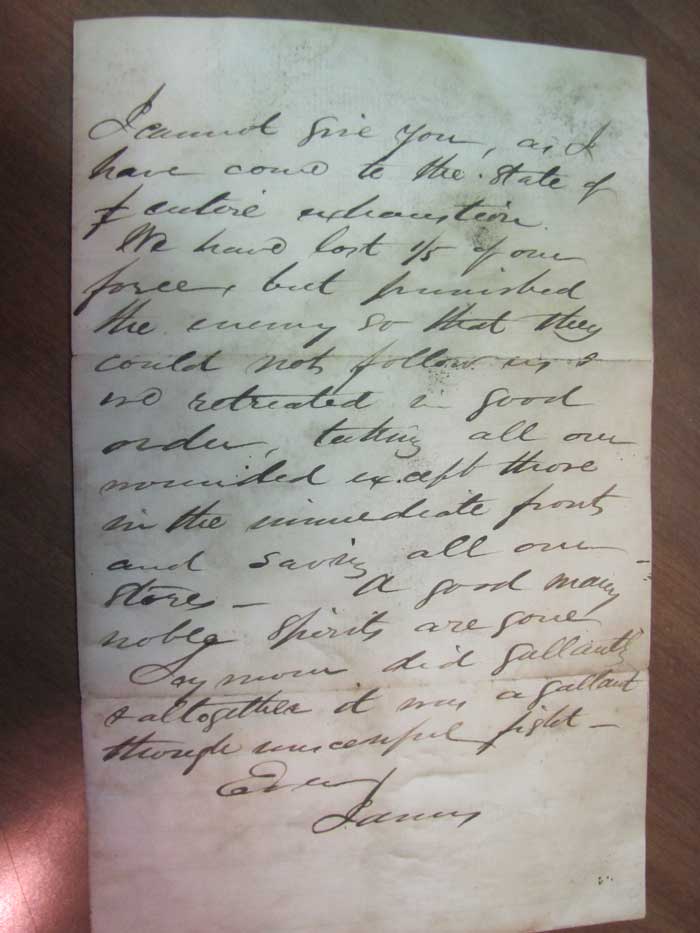 I cannot give you, as I
have come to the state of
entire exhaustion.
We have lost 1/5 of our
force, but punished
the enemy so that they
could not follow us &
we retreated in good
order, taking all our
wounded except those
in the immediate front
and saving all our
stores — A good many
noble spirits are gone
Seymour did gallantly
& altogether it was a gallant
though unsuccessful fight —
Ever
James